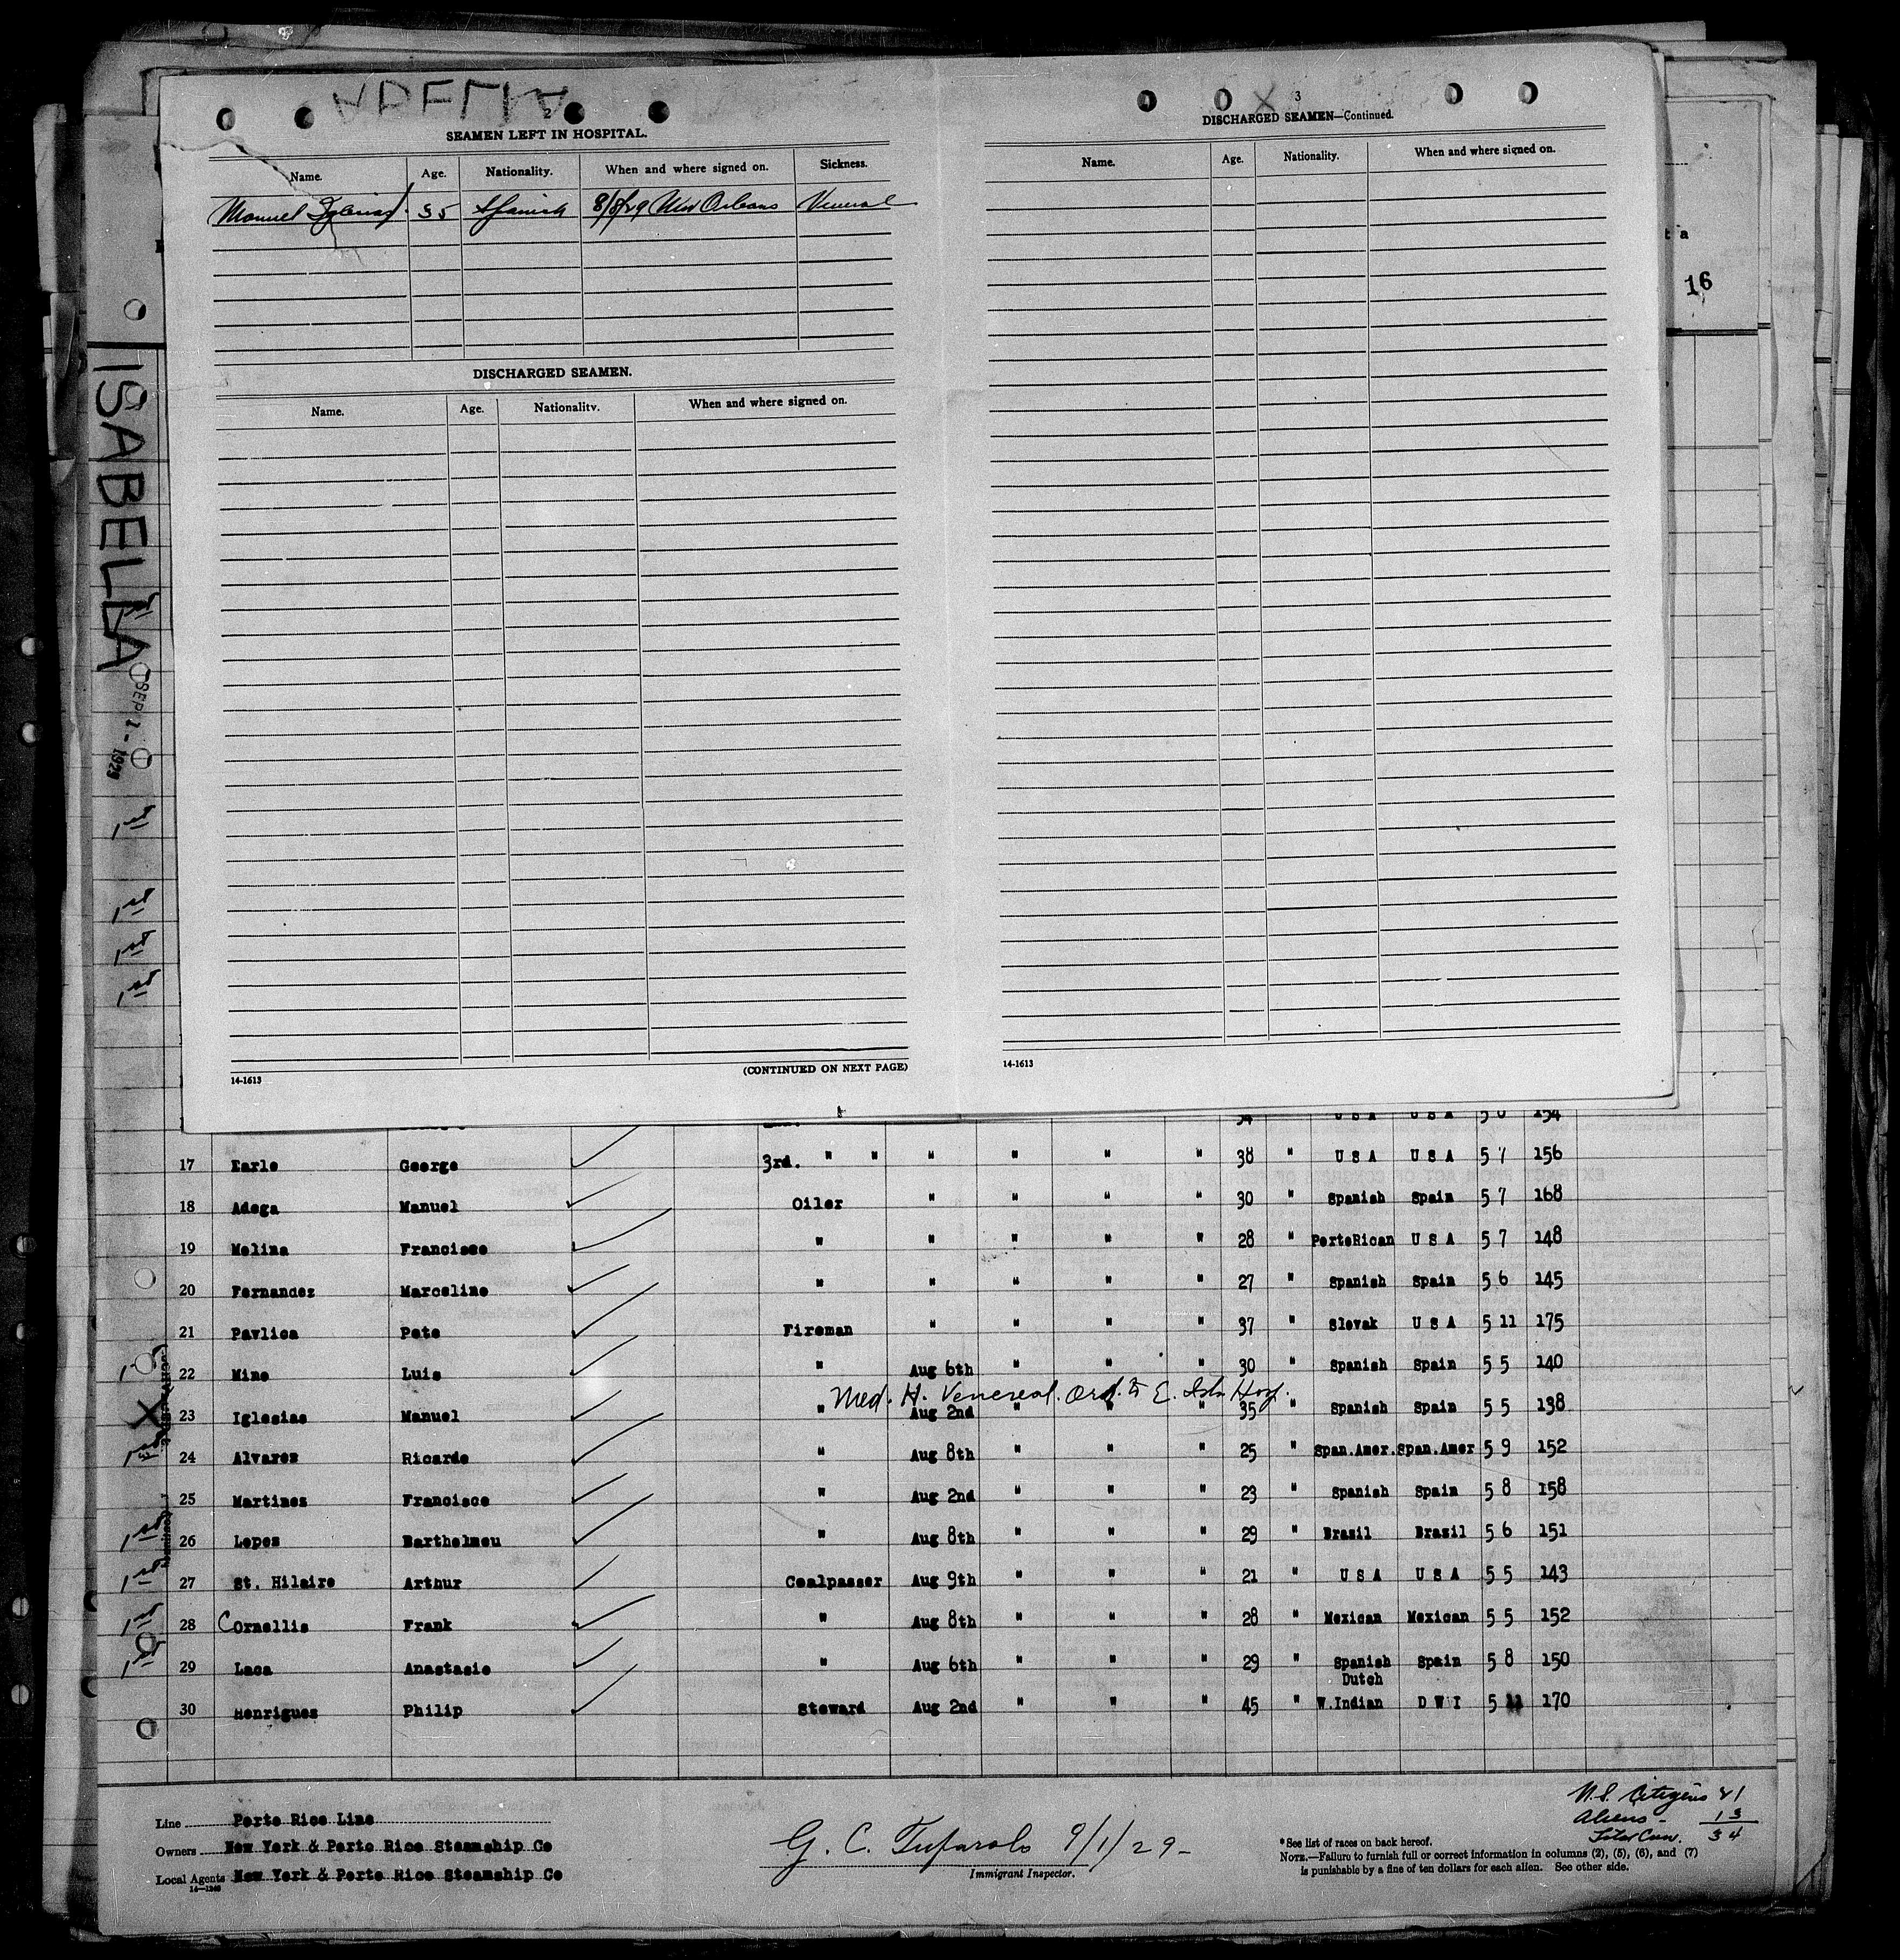 2
SEAMEN LEFT IN HOSPITAL.
Name. Age. Nationality. When and where signed on. Sickness.
Manuel Iglesias 35 Spanish 8/8/29 New Orleans Veneral
DISCHARGED SEAMEN.
Name. Age. Nationality. When and where signed on.
14-1613
(CONTINUED ON NEXT PAGE)
3
DISCHARGED SEAMEN—Continued.
Name. Age. Nationality. When and where signed on.
14-1613
16
ISABELLA
SEP 1 - 1929
34 USA USA 154
17 Earle George 3rd. " " " " " " 38 " USA USA 5 7 156
18 Adega Manuel Oiler " " " " 30 " Spanish Spain 5 7 168
19 Molina Francisco " " " " " 28 " PortoRican USA 5 7 148
20 Fernandez Marcelino " " " " " 27 " Spanish Spain 5 6 145
21 Pavlica Pete Fireman " " " " 37 " Slovak USA 5 11 175
22 Mino Luis " Aug 6th " " " 30 " Spanish Spain 5 5 140
Med. H. Venereal. Ord. to E. Isl. Hosp.
23 Iglesias Manuel " Aug 2nd " " " 35 " Spanish Spain 5 5 138
24 Alvarez Ricardo " Aug 8th " " " 25 " Span.Amer. Span.Amer 5 9 152
25 Martinez Francisco " Aug 2nd " " " 23 " Spanish Spain 5 8 158
26 Lopez Barthelmeu " Aug 8th " " " 29 " Brasil Brasil 5 6 151
27 St. Hilaire Arthur Coalpasser Aug 9th " " " 21 " USA USA 5 5 143
28 Cornellis Frank " Aug 8th " " " 28 " Mexican Mexican 5 5 152
29 Laca Anastasio " Aug 6th " " " 29 " Spanish Spain 5 8 150
30 Henrigues Philip Steward Aug 2nd " " " 45 " Dutch W.Indian DWI 5 11 170
Line Porto Rico Line
Owners New York & Porto Rico Steamship Co
Local Agents New York & Porto Rico Steamship Co
14-1240
G. C. Tufarolo 9/1/29-
Immigrant Inspector.
U.S. Citizens 21
Aliens - 13
Total Crew. 34
*See list of races on back hereof.
NOTE.—Failure to furnish full or correct information in columns (2), (5), (6), and (7)
is punishable by a fine of ten dollars for each alien. See other side.